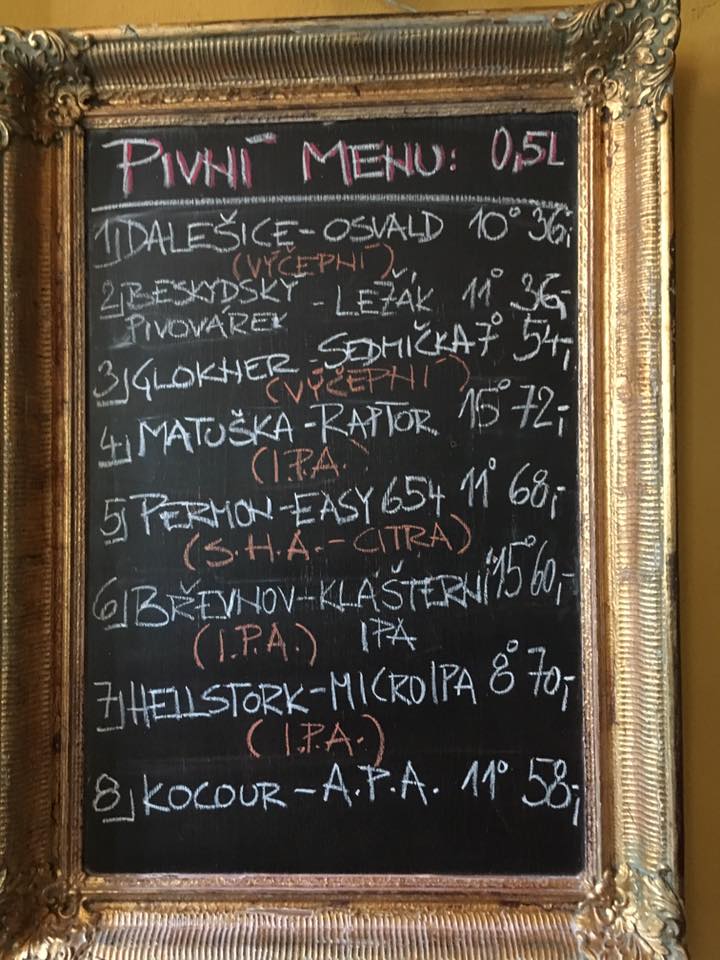 PIVNÍ MENU: 0,5L
1) DALEŠICE - OSVALD 10° 36,-
(VÝČEPNÍ)
2) BESKYDSKÝ - LEŽÁK 11° 36,-
PIVOVÁREK
3) GLOKNER - SEDMIČKA 7° 54,-
(VÝČEPNÍ)
4) MATUŠKA - RAPTOR 15° 72,-
(I.P.A.)
5) PERMON - EASY 654 11° 68,-
(S.H.A. - CITRA)
6) BŘEVNOV - KLÁŠTERNÍ 15° 60,-
(I.P.A.) IPA
7) HELLSTORK - MICRO IPA 8° 70,-
(I.P.A.)
8) KOCOUR - A.P.A. 11° 58,-